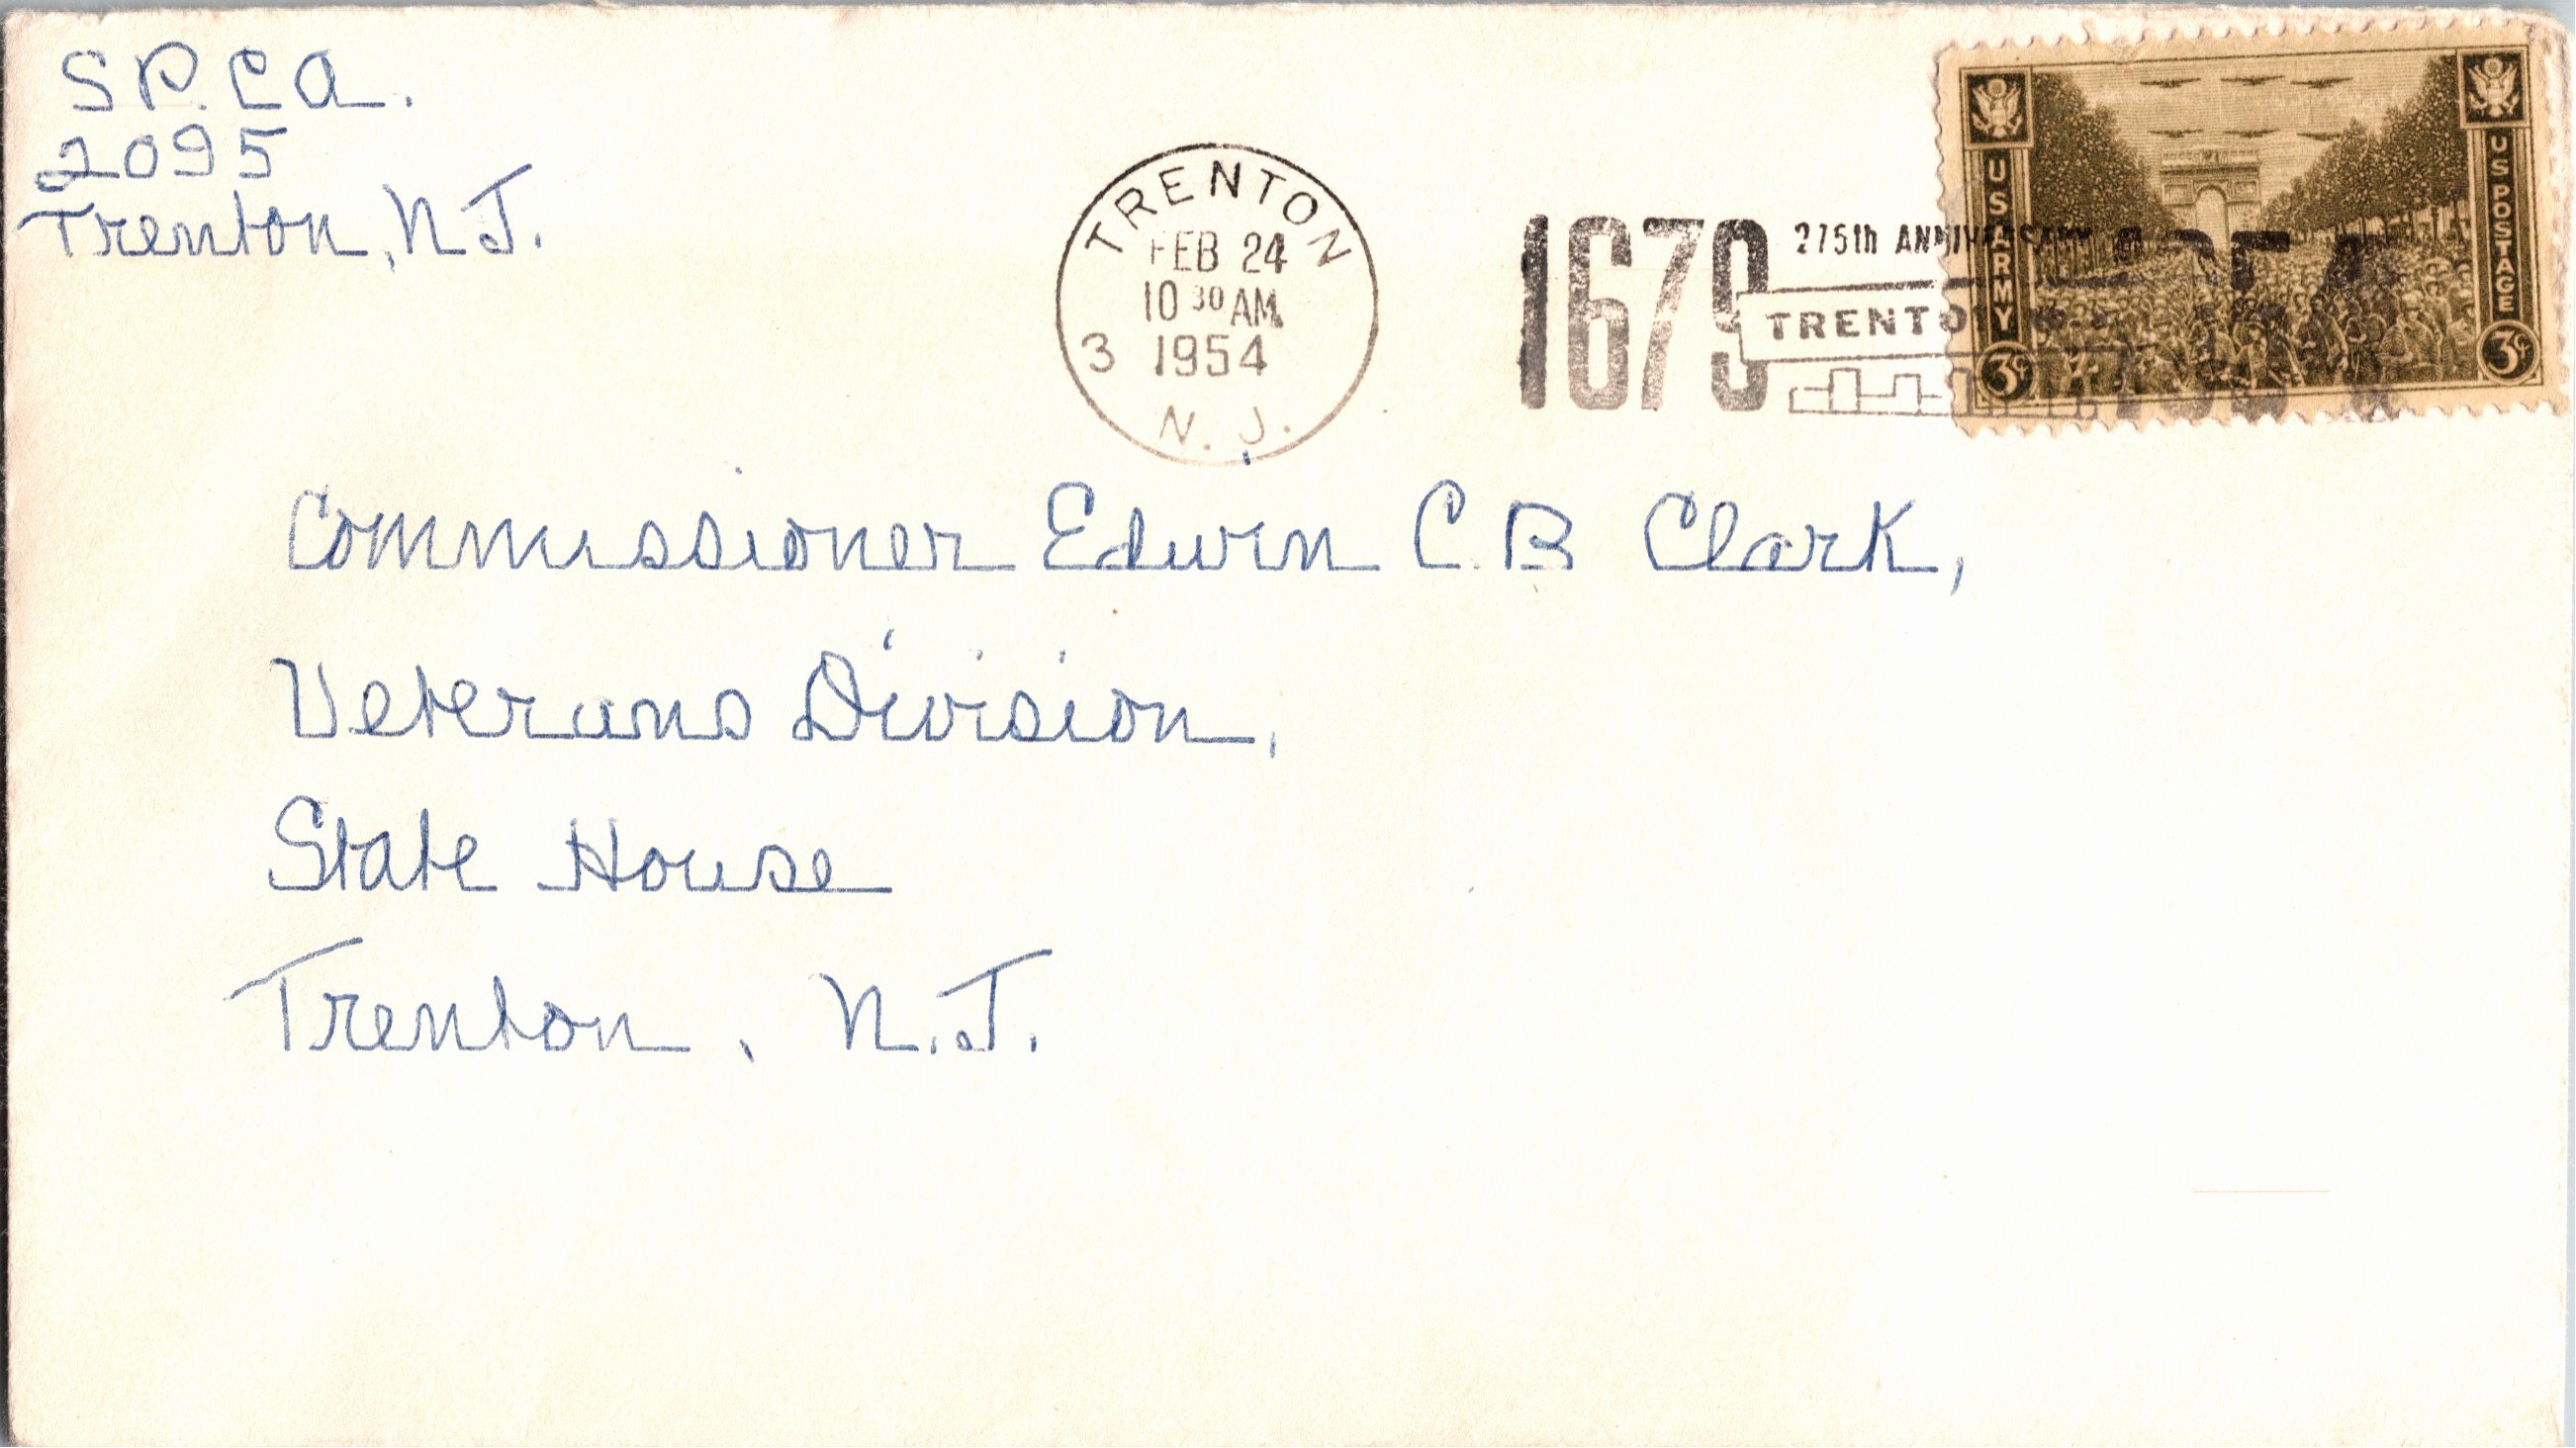 S P. C A.
2095
Trenton, N J.
TRENTON
FEB 24
10 30 AM
3 1954
N. J.
1679
275th ANNIVERSARY
TRENTON
1954
U S ARMY
U S POSTAGE
3¢
3¢
Commissioner Edwin C. B Clark,
Veterans Division,
State House
Trenton, N. J.